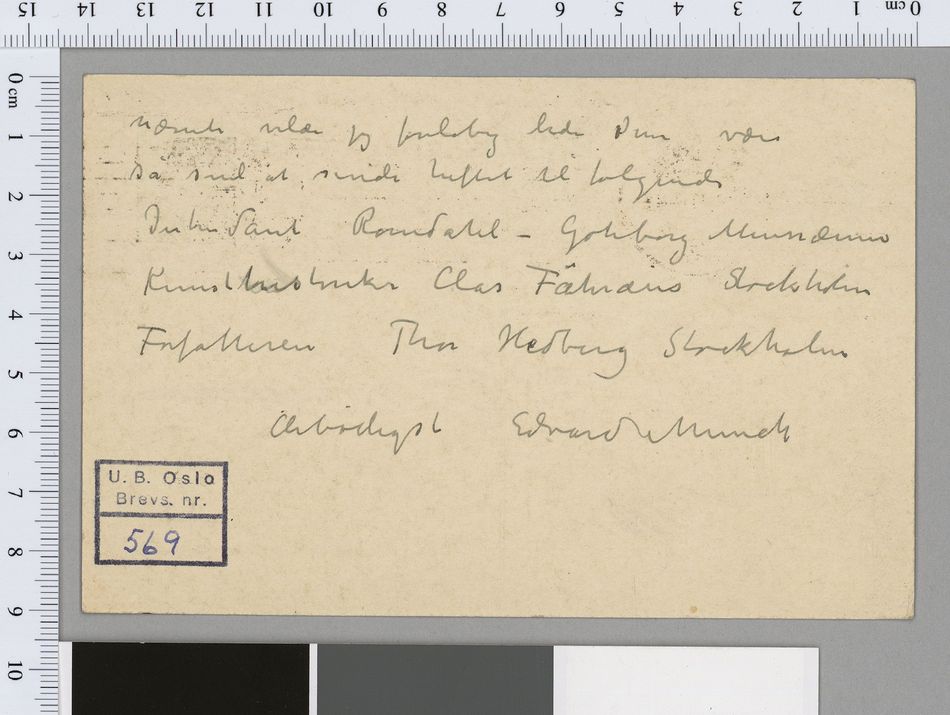 nævnte vilde jeg foreløbig bede Dem være
så snil at sende heftet til følgende
Intendant Romdahl – Gøteborg Musæum
Kunsthistoriker Clas Fåhræus Stockholm
Forfatteren Thor Hedberg Stockholm
Ærbødigst Edvard Munch
U. B. Oslo
Brevs. nr.
569
0 cm 1 2 3 4 5 6 7 8 9 10 11 12 13 14 15
0 cm 1 2 3 4 5 6 7 8 9 10